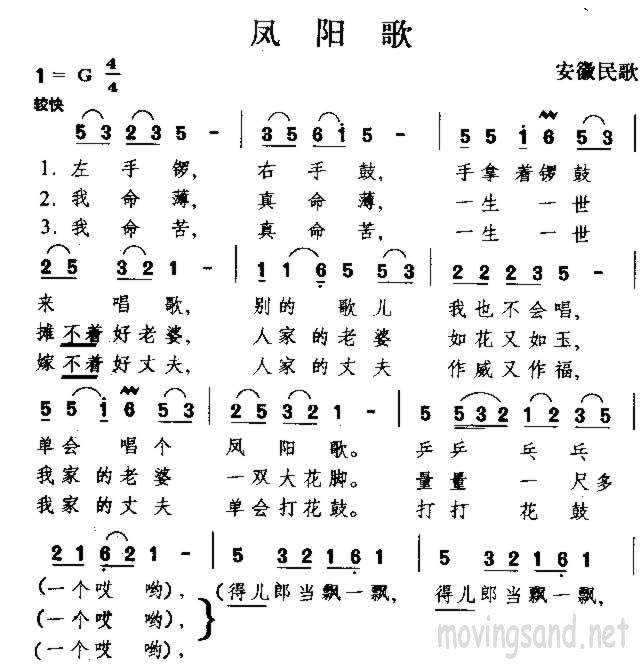 凤阳歌
1=G 4/4
安徽民歌
较快
5 3 2 3 5 - | 3 5 6 i 5 - | 5 5 i 6 5 3
1.左手锣, 右手鼓, 手拿着锣鼓
2.我命薄, 真命薄, 一生一世
3.我命苦, 真命苦, 一生一世
2 5 3 2 1 - | 1 1 6 5 5 3 | 2 2 2 3 5 -
来唱歌, 别的歌儿 我也不会唱,
摊不着好老婆, 人家的老婆 如花又如玉,
嫁不着好丈夫, 人家的丈夫 作威又作福,
5 5 i 6 5 3 | 2 5 3 2 1 - | 5 5 3 2 1 2 3 5
单会唱个 凤阳歌。 乒乒乓乓
我家的老婆 一双大花脚。 量量一尺多
我家的丈夫 单会打花鼓。 打打花鼓
2 1 6 2 1 - | 5 3 2 1 6 1 | 5 3 2 1 6 1
(一个哎哟), (得儿郎当飘一飘, 得儿郎当飘一飘,
(一个哎哟),
(一个哎哟),
movingsand.net